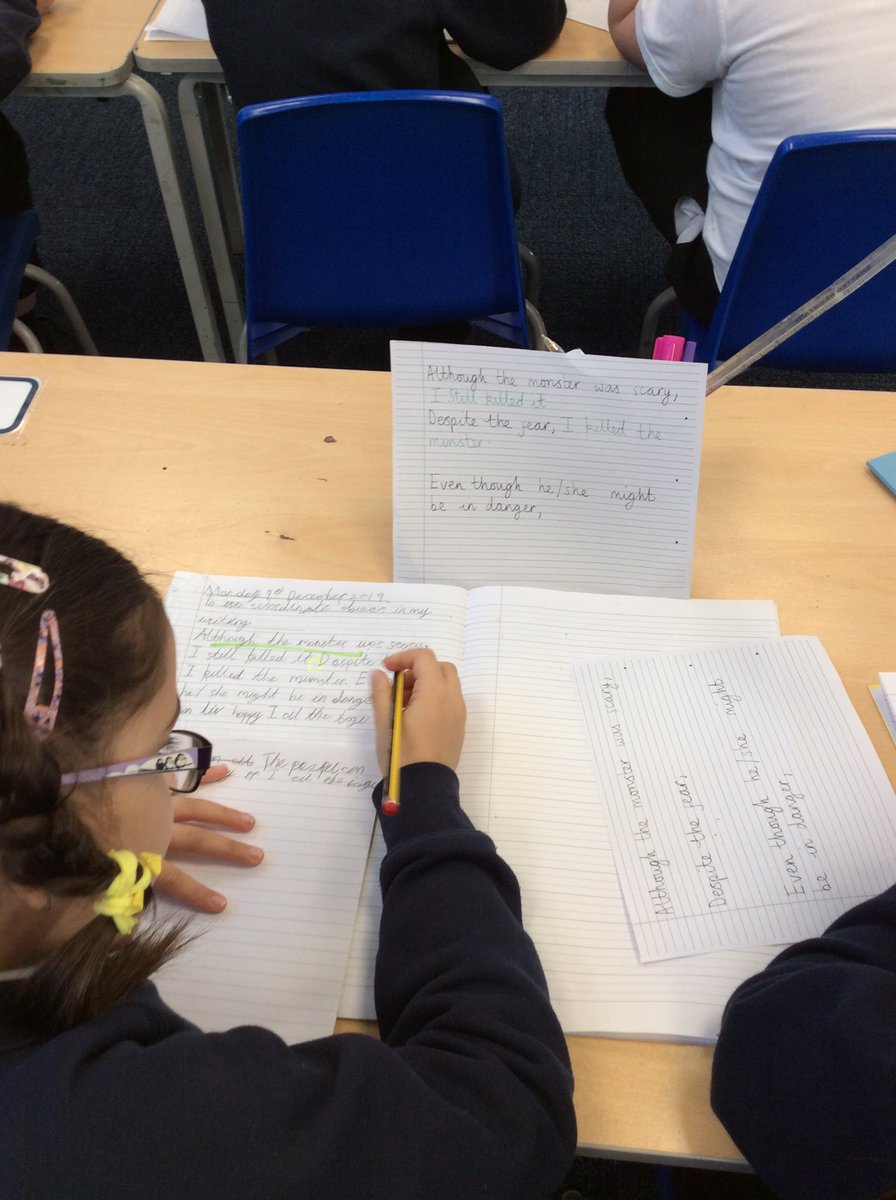 Although the monster was scary,
I still killed it
Despite the fear, I killed the
monster.
Even though he/she might
be in danger,
Monday 9th December 2019
to use subordinate clauses in my
writing
Although the monster was scary,
I still killed it. Despite
I killed the munster. E
he/she might be in dange
happy I all the
The
if I
Although the monster was scary,
Despite the fear,
Even though he/she might
be in danger,